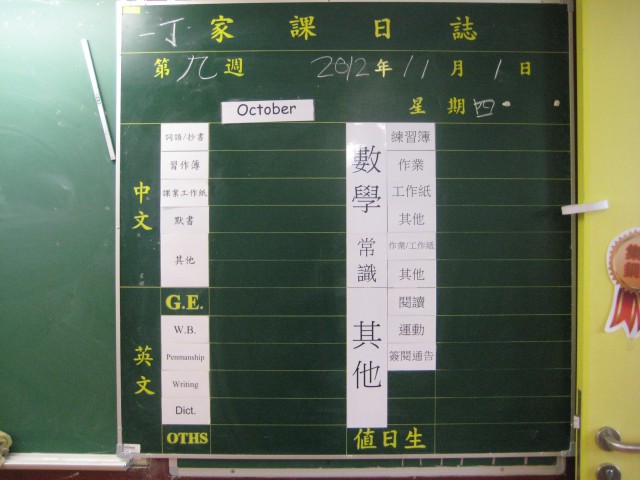 一丁 家課日誌
第九週 2012年11月1日
October 星期四
中文
詞語/抄書
習作簿
課業工作紙
默書
其他
英文
G.E.
W.B.
Penmanship
Writing
Dict.
OTHS
數學
練習簿
作業
工作紙
其他
常識
作業/工作紙
其他
其他
閱讀
運動
簽閱通告
值日生